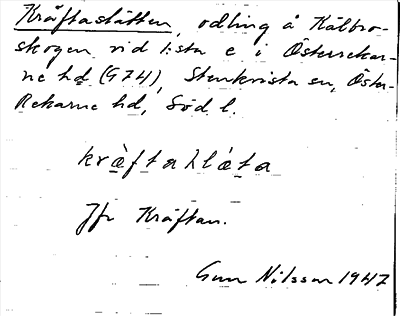 Kräftaslätten, odling å Kälbro-
skogen vid 1:sta e i Österrekar-
ne hd (G74), Stenkvista sn, Öster-
Rekarne hd, Söd l.
kräftasläta
Jfr Kräftan.
Gun Nilsson 1947